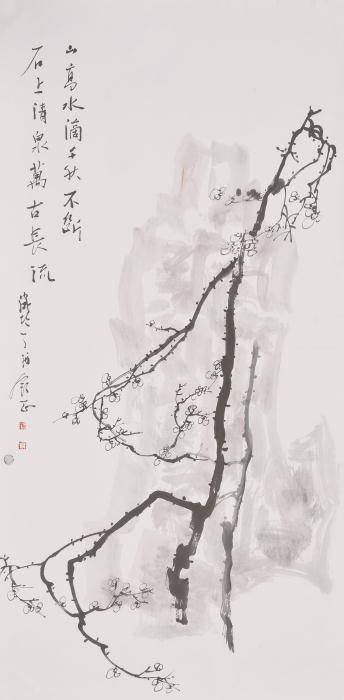 山高水滴千秋不斷
石上清泉萬古長流